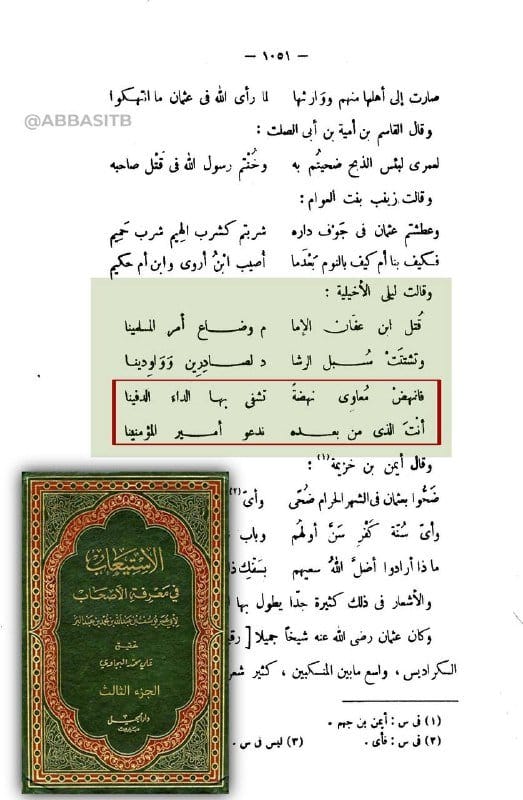 — ١٠٥١ —
@ABBASITB
صارت إلى أهلها منهم ووارثها لما رأى الله فى عثمان ما انتهكوا
وقال القاسم بن أمية بن أبى الصلت :
لعمرى لبئس الذبح ضحيتُم به وخُنْتم رسول الله فى قَتْل صاحبه
وقالت زينب بنت العوام :
وعطشتم عثمان فى جَوْف داره شربتم كشرب الهِيم شرب حَمِيم
فكيف بنا أم كيف بالنوم بَعْدَما أصيب ابْنُ أروى وابن أم حكيم
وقالت ليلى الأخيلية :
قُتل ابن عفان الإما م وضاع أمر المسلمينا
وتشتّتَتْ سُبل الرشا د لصادِرِين وَوَاردِينا
فانهضْ مُعاوِى نهضةً تشفى بها الداء الدفينا
أنْتَ الذى من بعده ندعو أمير المؤمنينا
وقال أيمن بن خزيمة (١) :
ضَحُّوا بعثمان فى الشهر الحرام ضُحًى وأىّ (٢)
وأىّ سُنّة كُفْرٍ سَنَّ أولُهُم وباب
ماذا أرادوا أضلَّ اللهُ سعيهم بسَفْكِ
والأشعار فى ذلك كثيرة جدّا يطول بها
وكان عثمان رضى الله عنه شيخاً جميلا [
الكراديس ، واسع مابين المنكبين ، كثير شعر
(١) فى س : أيمن بن جهم .
(٢) فى س : فأى . (٣) ليس فى س .
الاستيعاب
فى معرفة الأصحاب
لأبى عمر يوسف بن عبد الله بن محمد بن عبد البر
تحقيق
على محمد البجاوى
الجزء الثالث
دار الجيل
بيروت